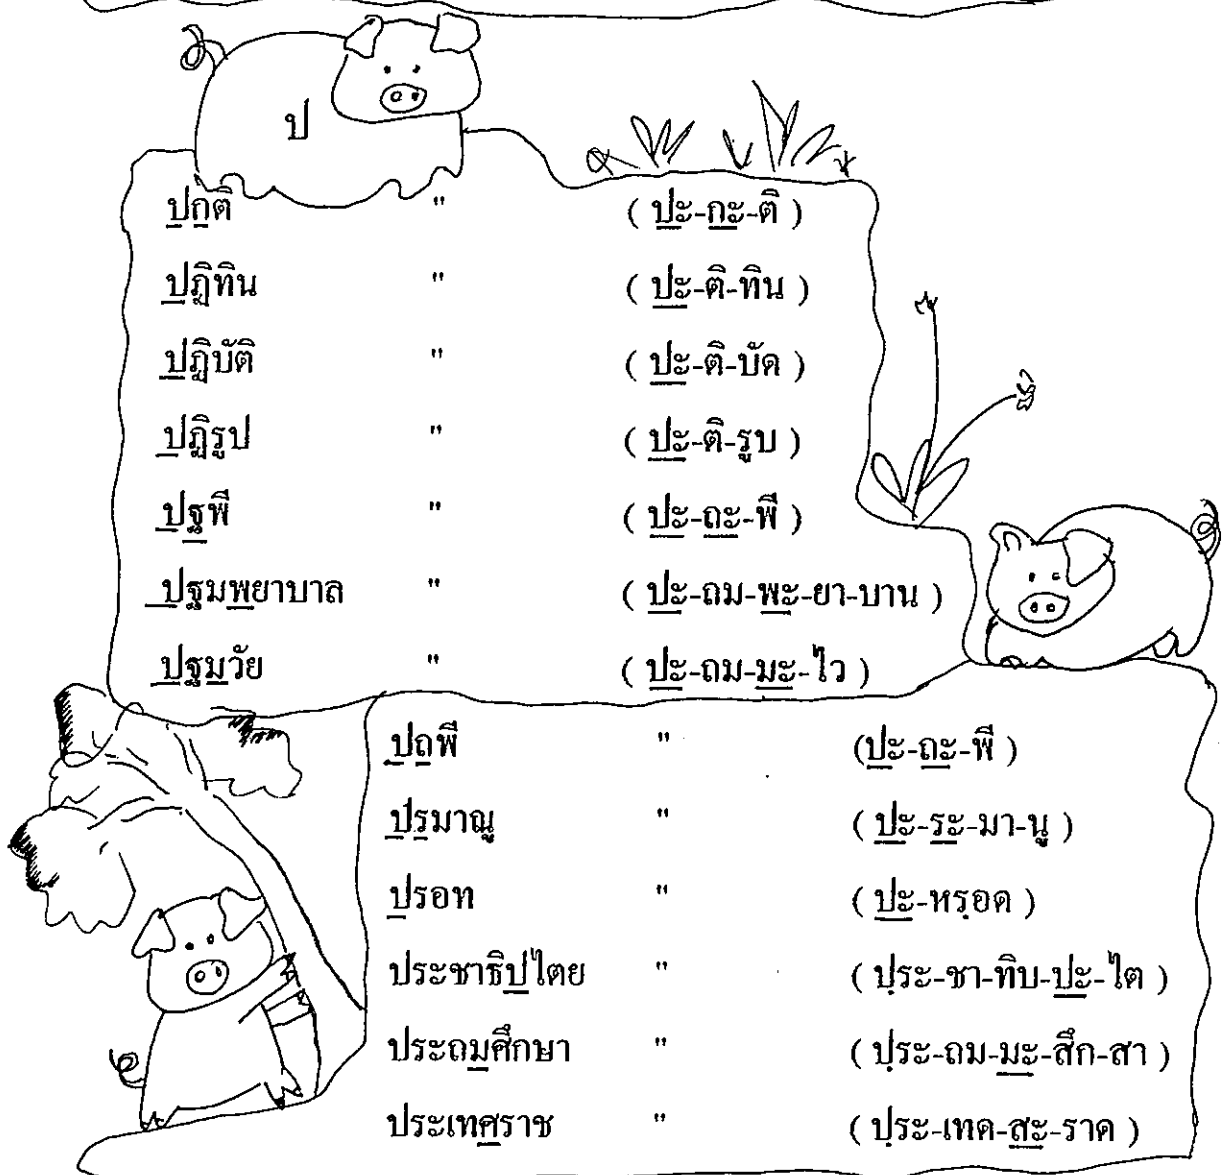 ป
ปกติ " ( ปะ-กะ-ติ )
ปฏิทิน " ( ปะ-ติ-ทิน )
ปฏิบัติ " ( ปะ-ติ-บัด )
ปฏิรูป " ( ปะ-ติ-รูบ )
ปฐพี " ( ปะ-ถะ-พี )
ปฐมพยาบาล " ( ปะ-ถม-พะ-ยา-บาน )
ปฐมวัย " ( ปะ-ถม-มะ-ไว )
ปถพี " (ปะ-ถะ-พี )
ปรมาณู " ( ปะ-ระ-มา-นู )
ปรอท " ( ปะ-หรฺอด )
ประชาธิปไตย " ( ปฺระ-ชา-ทิบ-ปะ-ไต )
ประถมศึกษา " ( ปฺระ-ถม-มะ-สึก-สา )
ประเทศราช " ( ปฺระ-เทด-สะ-ราด )